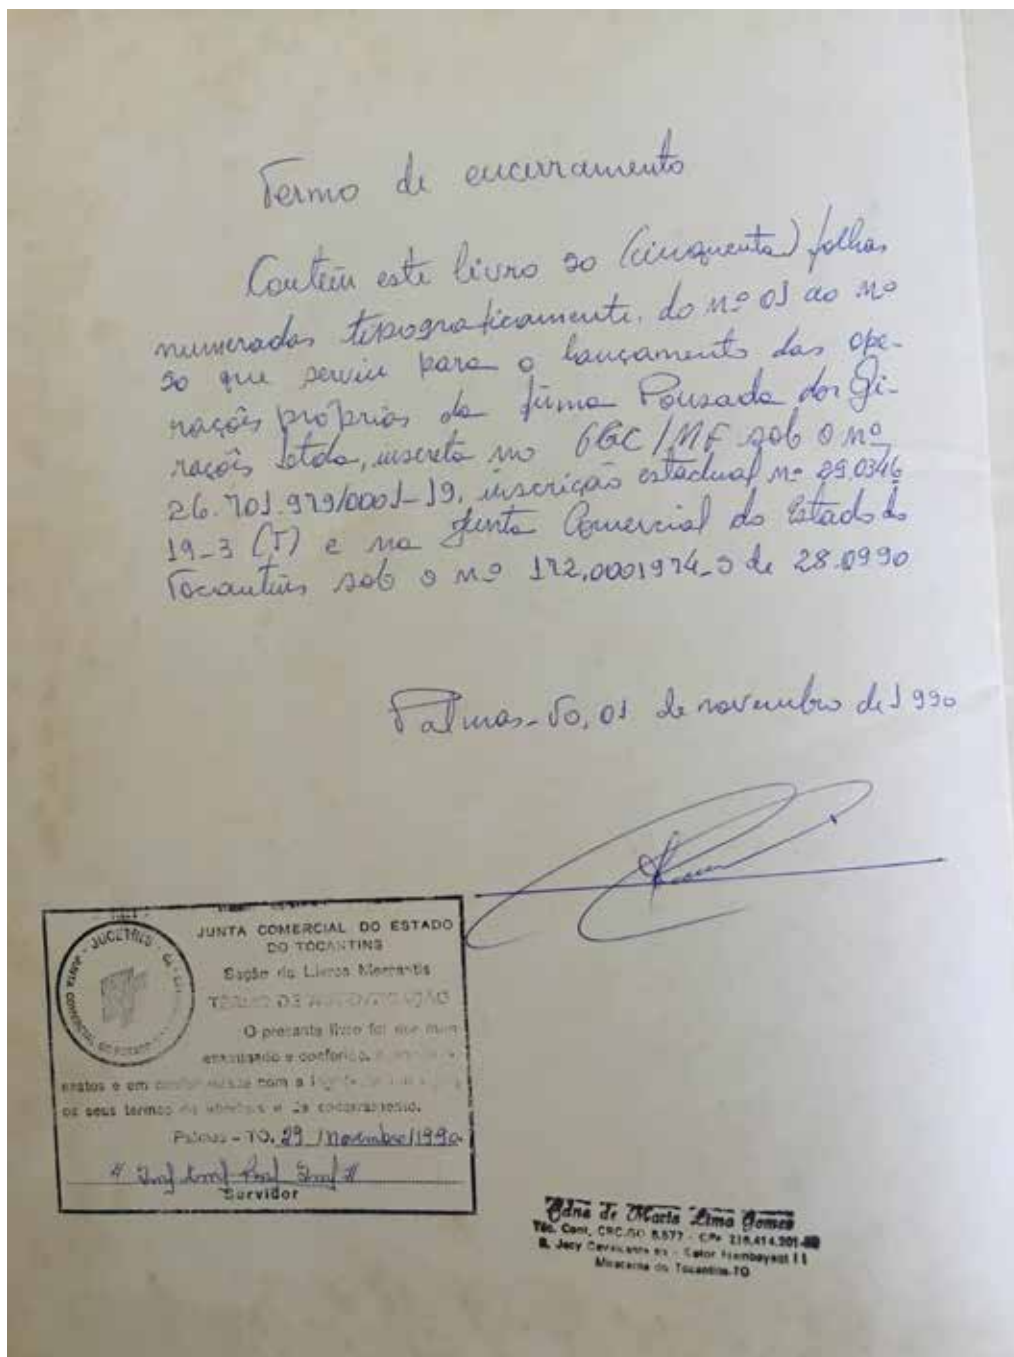 Termo de encerramento
Contém este livro 50 (cinquenta) folhas
numeradas tipograficamente, do nº 01 ao nº
50 que serviu para o lançamento das ope-
rações próprias da firma Pousada dos Gi-
rações Ltda, inscrita no CGC/MF sob o nº
26.701.979/0001-19, inscrição estadual nº 29.0346
19-3 (T) e na Junta Comercial do Estado do
Tocantins sob o nº 172.0001974-9 de 28.0990
Palmas-To, 01 de novembro de 1990
JUNTA COMERCIAL DO ESTADO
DO TOCANTINS
Seção de Livros Mercantis
TERMO DE AUTENTICAÇÃO
O presente livro foi por mim
examinado e conferido,
exatos e em conformidade com a
os seus termos de abertura e de encerramento.
Palmas - TO, 29 / novembro / 1990
Servidor
JUCETINS
JUNTA COMERCIAL DO ESTADO
Edna de Maria Lima Gomes
Téc. Cont. CRC.GO 8.577 - CPF 218.414.201
R. Jacy Cavalcante - Setor II
Miracema do Tocantins-TO